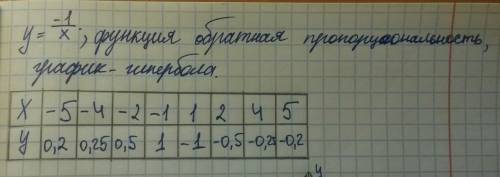 y = -1/x; функция обратная пропорциональность,
график - гипербола.
X -5 -4 -2 -1 1 2 4 5
У 0,2 0,25 0,5 1 -1 -0,5 -0,25 -0,2
y